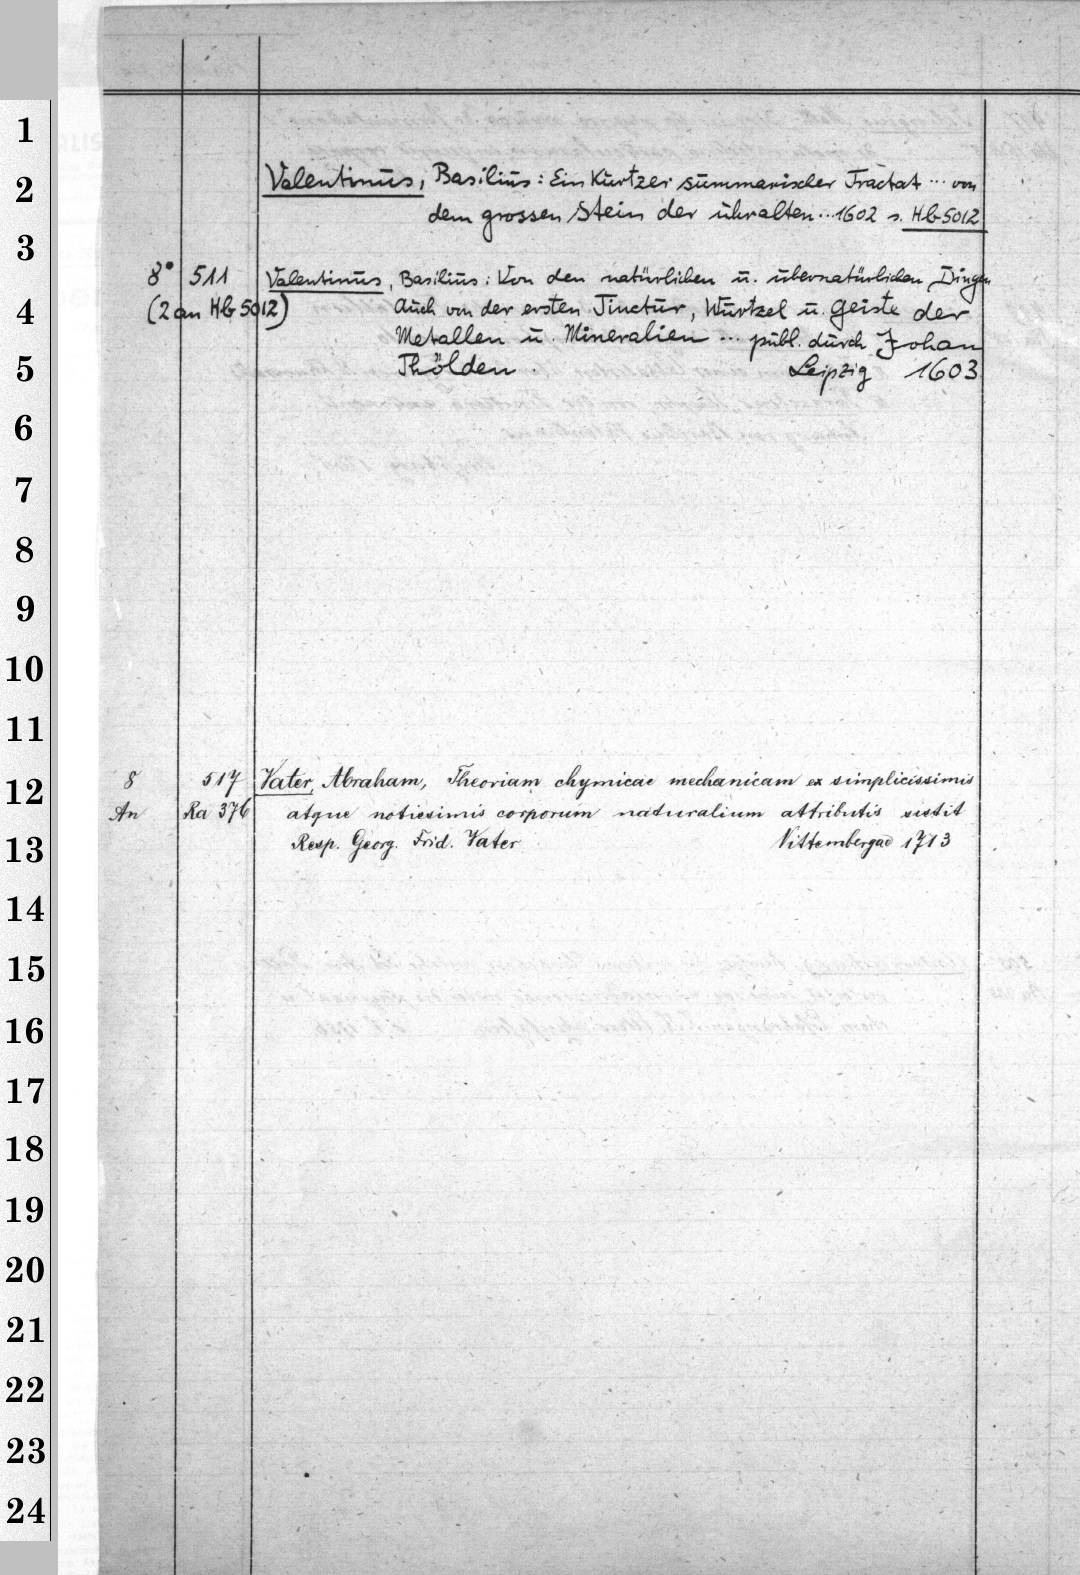 1
2
3
4
5
6
7
8
9
10
11
12
13
14
15
16
17
18
19
20
21
22
23
24
Valentinus, Basilius: Ein Kurtzer summarischer Tractat ... von
dem grossen Stein der uhralten ... 1602 s. Hb 5012
8° 511 Valentinus, Basilius: Von den natürlichen u. übernatürlichen Dingen
(2 an Hb 5012) Auch von der ersten Tinctur, Wurtzel u. Geiste der
Metallen u. Mineralien ... publ. durch Johan
Thölden. Leipzig 1603
8 517 Vater, Abraham, Theoriam chymicae mechanicam ex simplicissimis
An Ra 376 atque notissimis corporum naturalium attributis sistit
Resp. Georg. Frid. Vater Vittembergae 1713